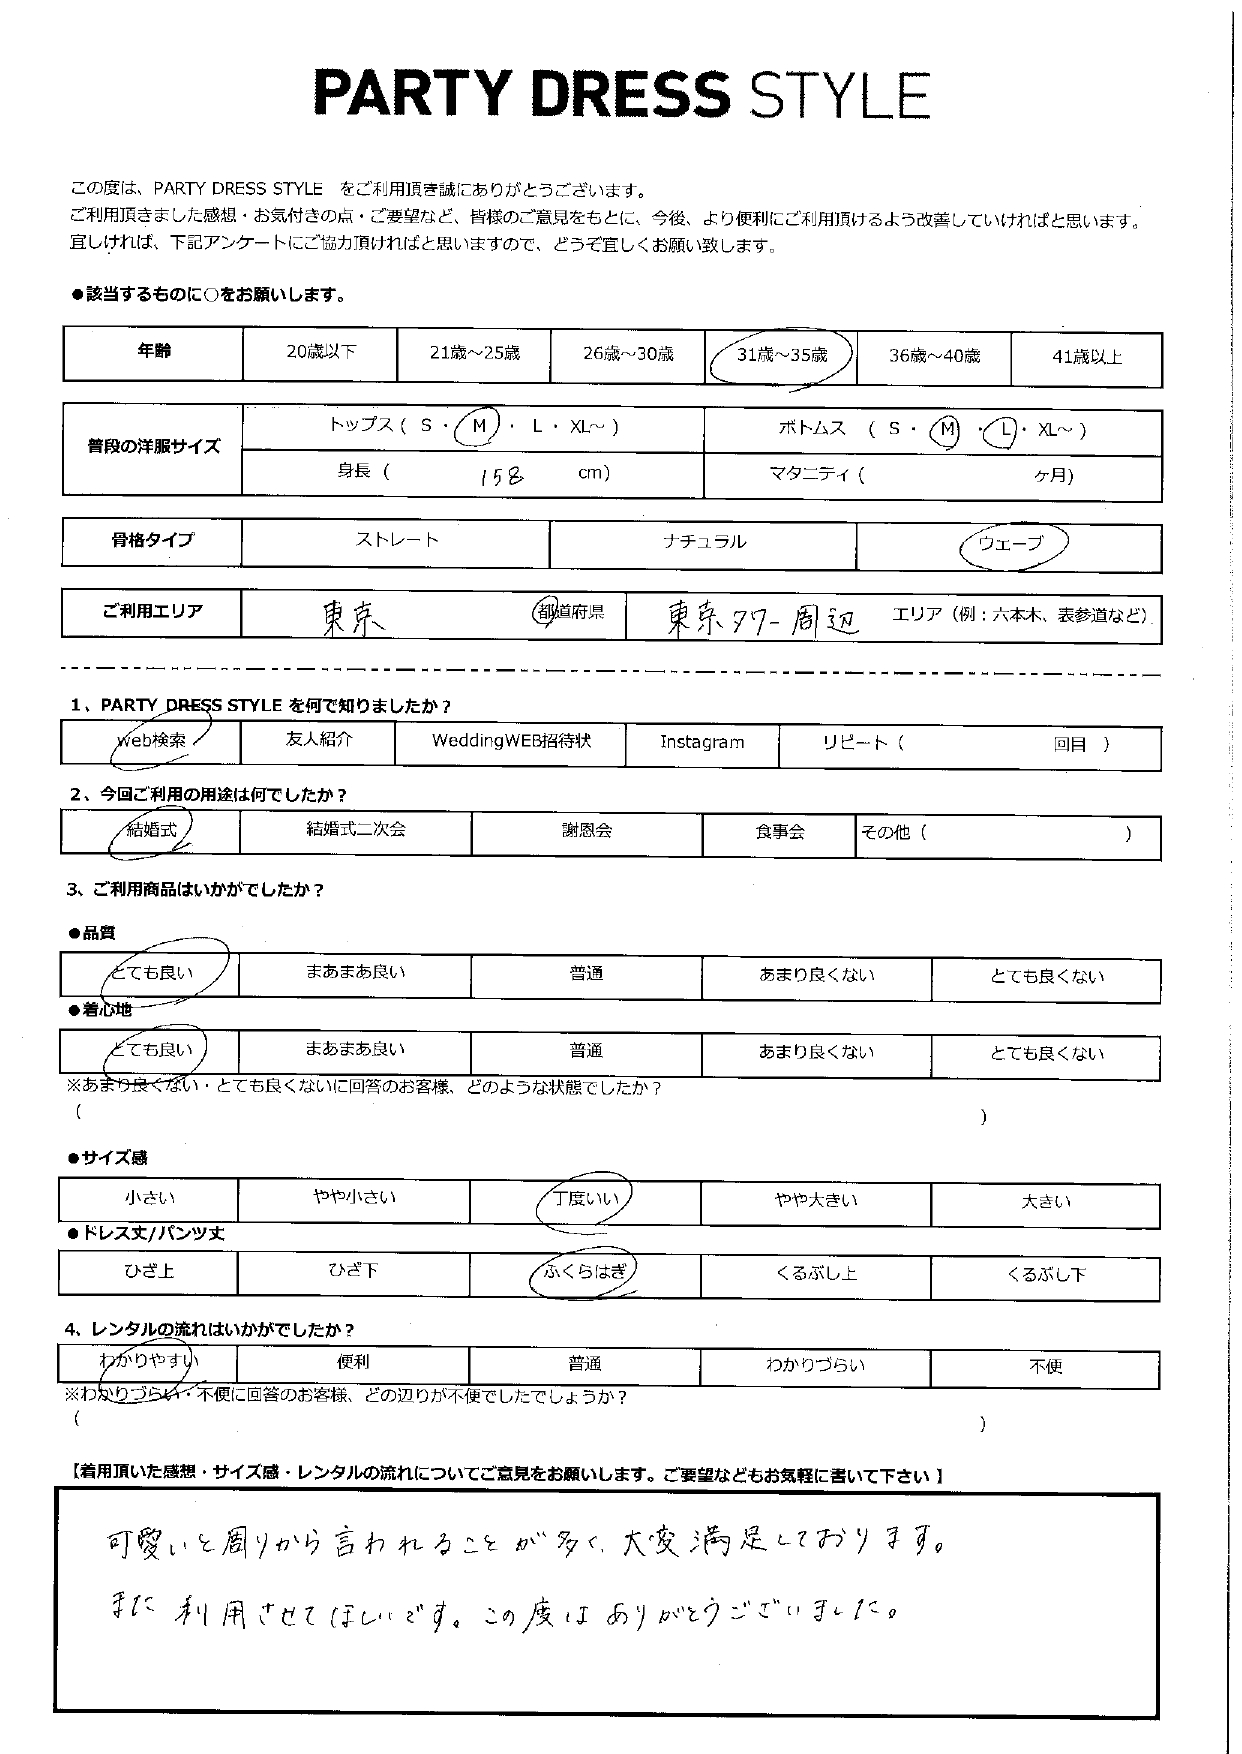 PARTY DRESS STYLE
この度は、PARTY DRESS STYLE をご利用頂き誠にありがとうございます。
ご利用頂きました感想・お気付きの点・ご要望など、皆様のご意見をもとに、今後、より便利にご利用頂けるよう改善していければと思います。
宜しければ、下記アンケートにご協力頂ければと思いますので、どうぞ宜しくお願い致します。
●該当するものに○をお願いします。
年齢 20歳以下 21歳～25歳 26歳～30歳 31歳～35歳 36歳～40歳 41歳以上
普段の洋服サイズ トップス ( S ・ M ・ L ・ XL～ ) ボトムス ( S ・ M ・ L ・ XL～ )
身長 ( 158 cm) マタニティ ( ヶ月)
骨格タイプ ストレート ナチュラル ウェーブ
ご利用エリア 東京 都道府県 東京タワー周辺 エリア（例：六本木、表参道など）
1、PARTY DRESS STYLE を何で知りましたか？
web検索 友人紹介 WeddingWEB招待状 Instagram リピート ( 回目 )
2、今回ご利用の用途は何でしたか？
結婚式 結婚式二次会 謝恩会 食事会 その他 ( )
3、ご利用商品はいかがでしたか？
●品質
とても良い まあまあ良い 普通 あまり良くない とても良くない
●着心地
とても良い まあまあ良い 普通 あまり良くない とても良くない
※あまり良くない・とても良くないに回答のお客様、どのような状態でしたか？
( )
●サイズ感
小さい やや小さい 丁度いい やや大きい 大きい
●ドレス丈/パンツ丈
ひざ上 ひざ下 ふくらはぎ くるぶし上 くるぶし下
4、レンタルの流れはいかがでしたか？
わかりやすい 便利 普通 わかりづらい 不便
※わかりづらい・不便に回答のお客様、どの辺りが不便でしたでしょうか？
( )
【着用頂いた感想・サイズ感・レンタルの流れについてご意見をお願いします。ご要望などもお気軽に書いて下さい】
可愛いと周りから言われることが多く、大変満足しております。
また利用させてほしいです。この度はありがとうございました。